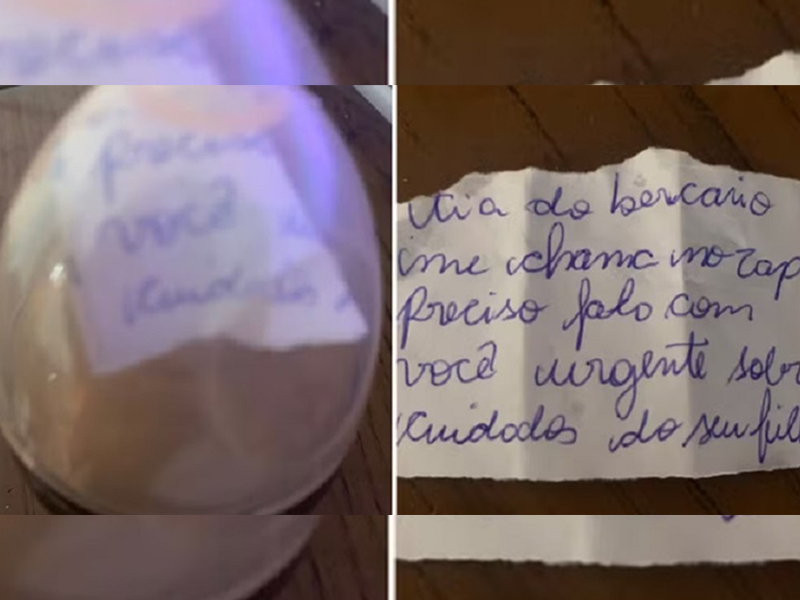 preciso
você
cuidados
tia do bercario
me chama no zap
preciso falo com
você urgente sobr
cuidados do seu fil